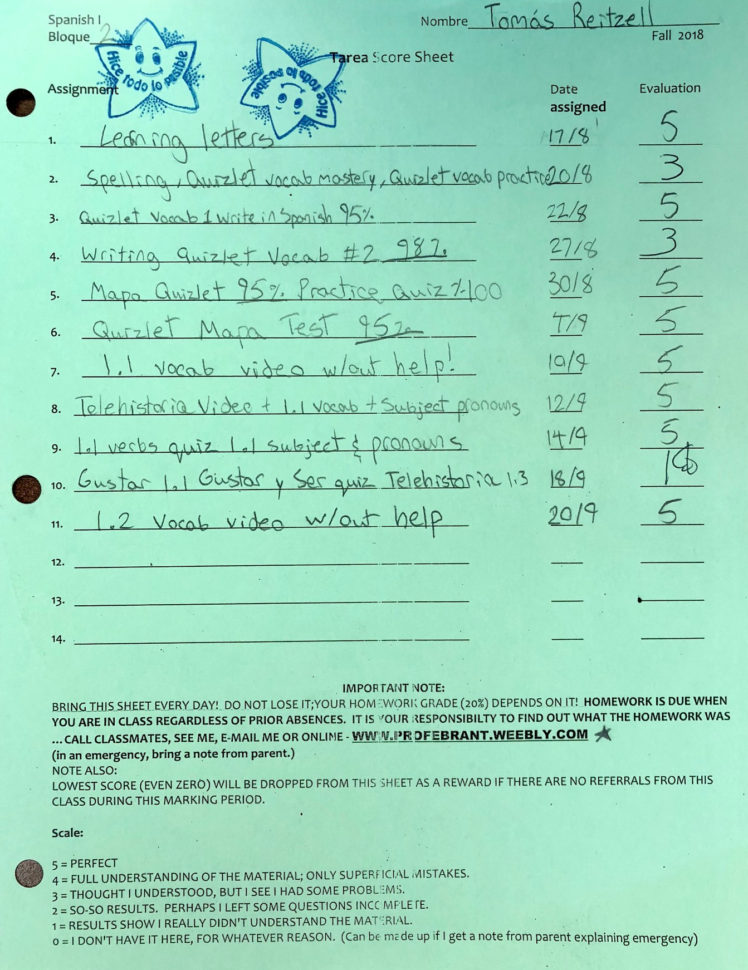 Spanish I
Nombre Tomás Reitzell
Bloque 2
Fall 2018
Hice todo lo posible
Hice todo lo posible
Tarea Score Sheet
Assignment Date assigned Evaluation
1. Learning letters 17/8 5
2. Spelling, Quizlet vocab mastery, Quizlet vocab practice 20/8 3
3. Quizlet Vocab 1 Write in Spanish 95% 22/8 5
4. Writing Quizlet Vocab #2 98% 27/8 3
5. Mapa Quizlet 95% Practice Quiz %100 30/8 5
6. Quizlet Mapa Test 95% 7/9 5
7. 1.1 vocab video w/out help! 10/9 5
8. Telehistoria Video + 1.1 vocab + Subject pronouns 12/9 5
9. 1.1 verbs quiz 1.1 subject & pronouns 14/9 5
10. Gustar 1.1 Gustar y Ser quiz Telehistoria 1.3 18/9
11. 1.2 Vocab video w/out help 20/9 5
12.
13.
14.
IMPORTANT NOTE:
BRING THIS SHEET EVERY DAY! DO NOT LOSE IT;YOUR HOMEWORK GRADE (20%) DEPENDS ON IT! HOMEWORK IS DUE WHEN
YOU ARE IN CLASS REGARDLESS OF PRIOR ABSENCES. IT IS YOUR RESPONSIBILTY TO FIND OUT WHAT THE HOMEWORK WAS
...CALL CLASSMATES, SEE ME, E-MAIL ME OR ONLINE - WWW.PROFEBRANT.WEEBLY.COM
(in an emergency, bring a note from parent.)
NOTE ALSO:
LOWEST SCORE (EVEN ZERO) WILL BE DROPPED FROM THIS SHEET AS A REWARD IF THERE ARE NO REFERRALS FROM THIS
CLASS DURING THIS MARKING PERIOD.
Scale:
5 = PERFECT
4 = FULL UNDERSTANDING OF THE MATERIAL; ONLY SUPERFICIAL MISTAKES.
3 = THOUGHT I UNDERSTOOD, BUT I SEE I HAD SOME PROBLEMS.
2 = SO-SO RESULTS. PERHAPS I LEFT SOME QUESTIONS INCOMPLETE.
1 = RESULTS SHOW I REALLY DIDN'T UNDERSTAND THE MATERIAL.
0 = I DON'T HAVE IT HERE, FOR WHATEVER REASON. (Can be made up if I get a note from parent explaining emergency)